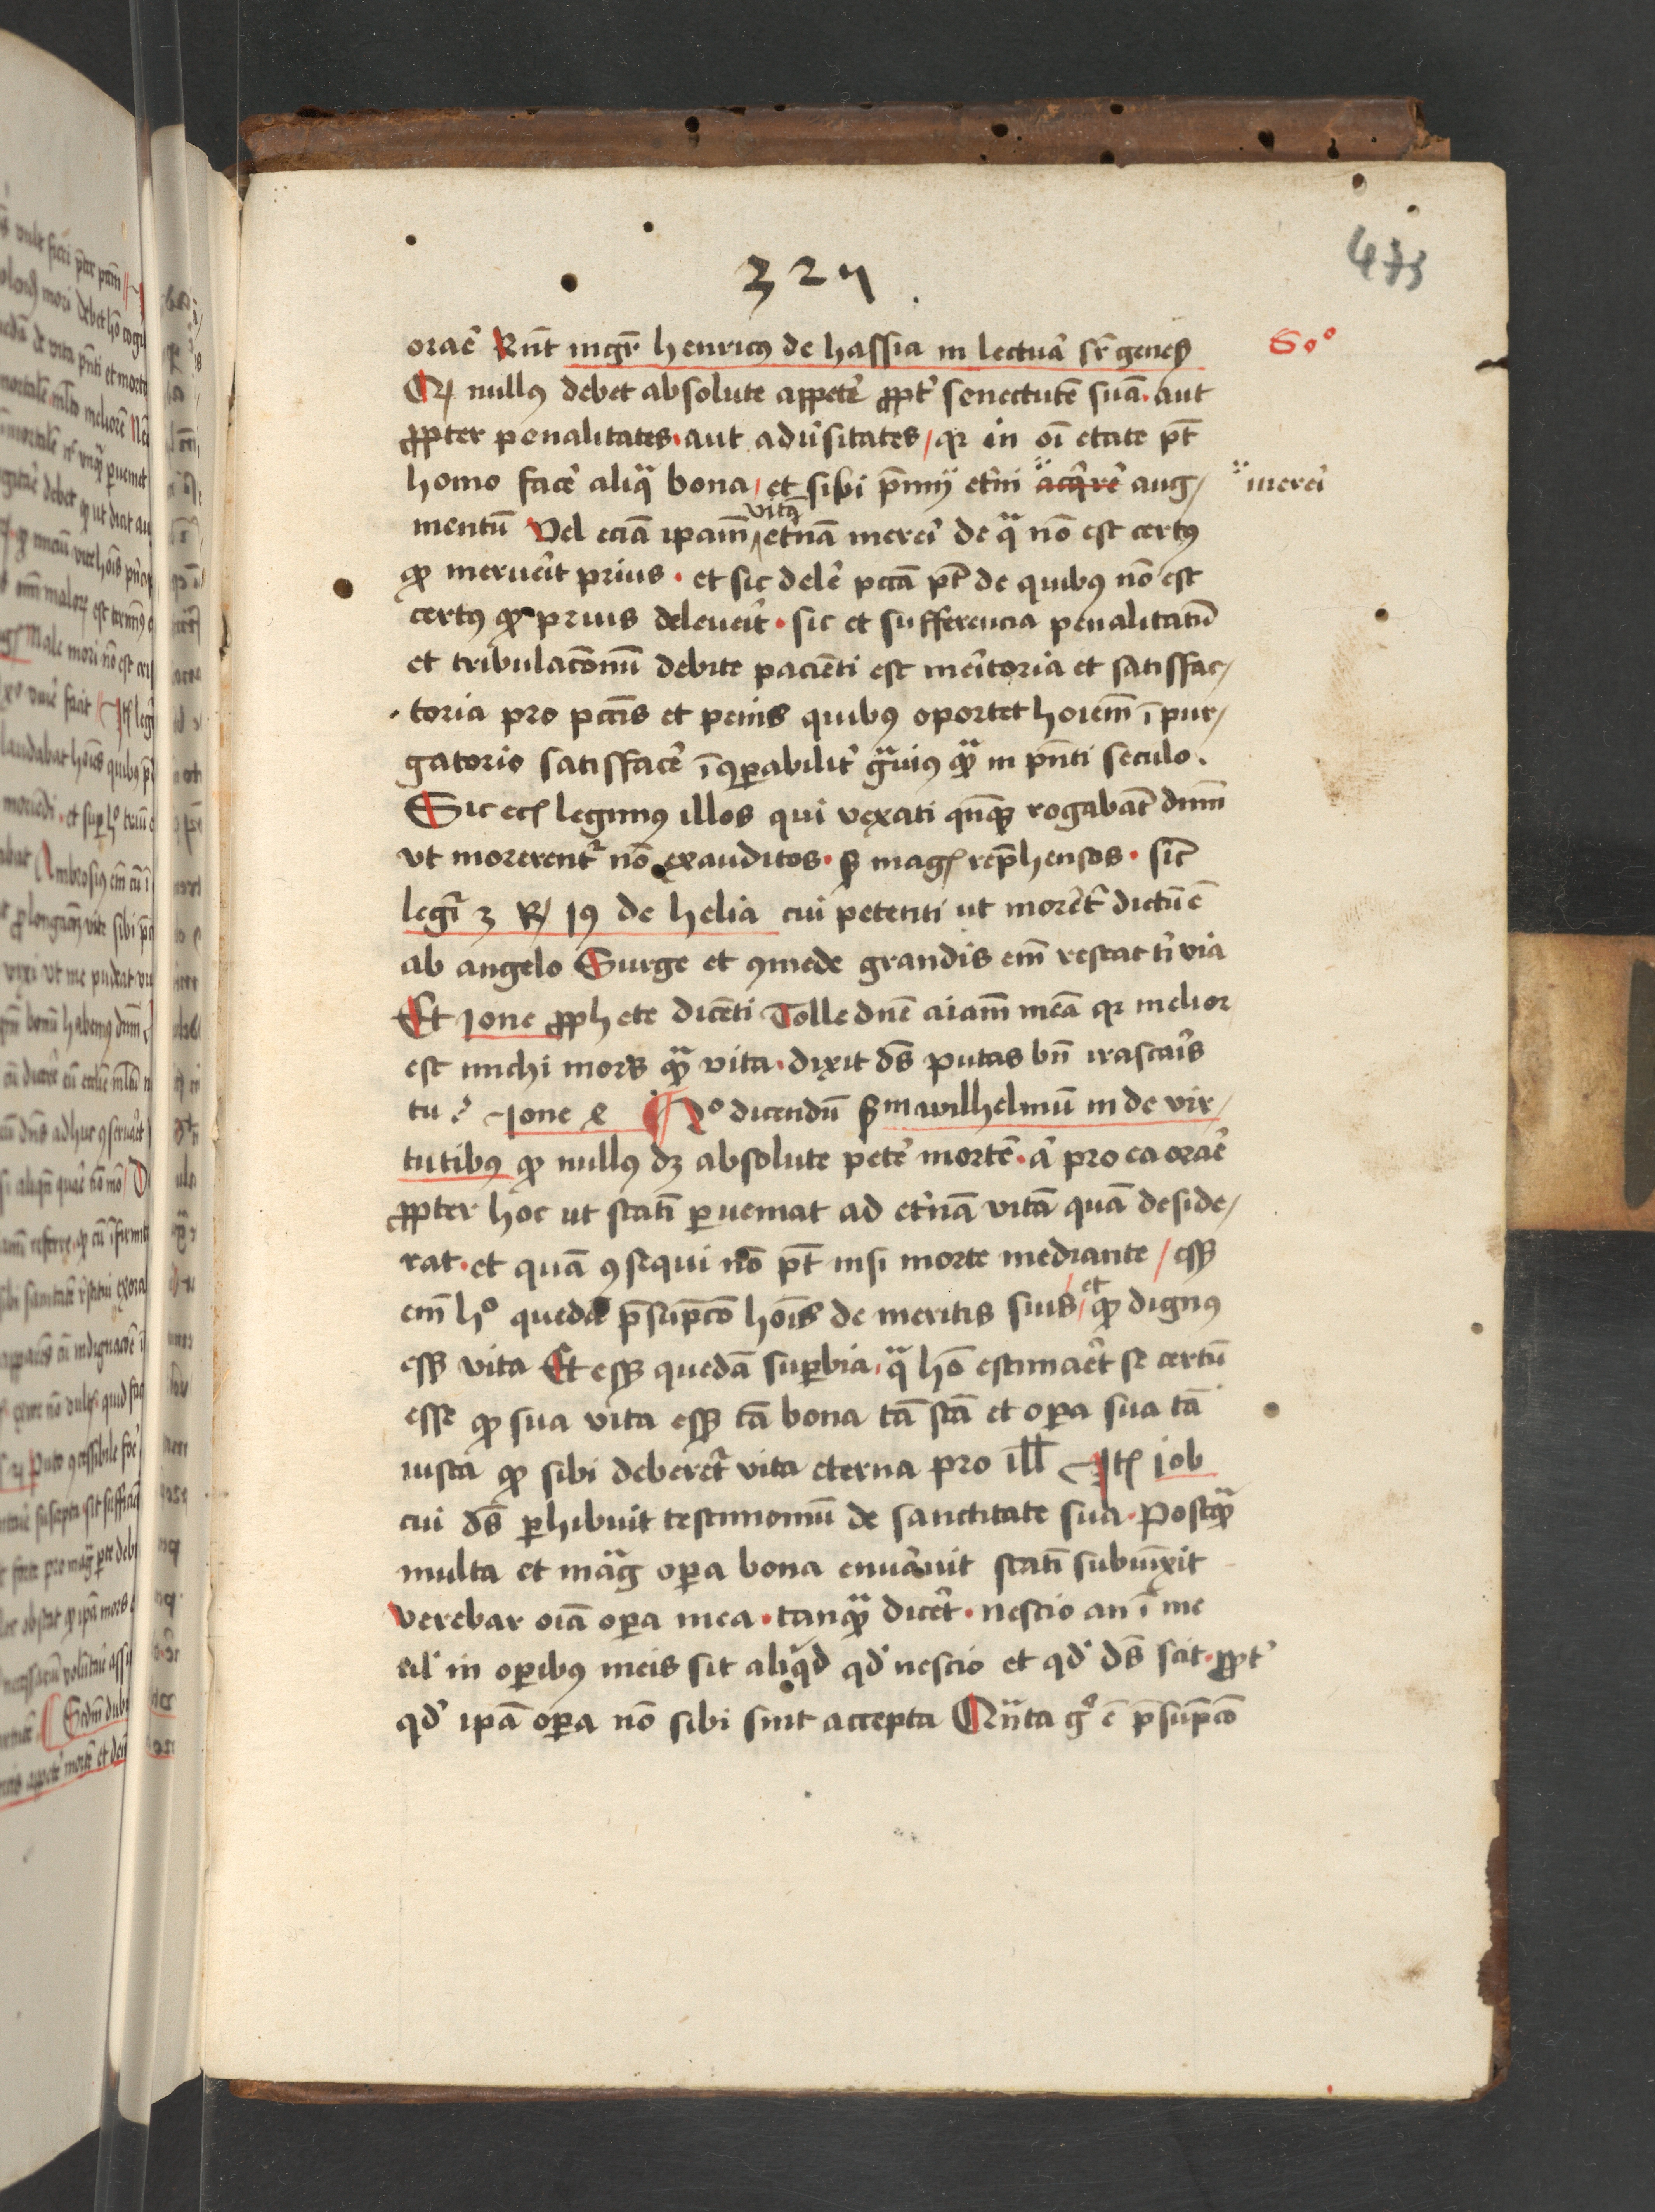 327
475
orar̄e Rn̄t mgr̄ henricus de hassia in lectura sr̄ genes̄ So°
Q nullus debet absolute appeter̄ ꝓpt̄ senectutē suā · aut
ꝓpter penalitates · aut adūsitates / qr in oī etate pt̄
homo facer̄ aliqa bona / et sibi p̄mij et̄ni acq̄rer̄ aug/ mererī
mentū Vel eciā ipam̄ vitā et̄nā mererī de qa nō est certus
ꝙ meruerit prius · et sic delēr pctā pt̄ de quibus nō est
certus ꝙ prius deleuerīt · sic et sufferencia penalitatū
et tribulacōnū debite pacienti est meritoria et satisfac/
toria pro pctīs et penis quibus oportet hoiem̄ ī pur/
gatorio satisfacer̄ īꝯparabilit̄ grauius qua in pn̄ti seculo .
Sic ecia legimus illos qui vexati qn̄qꝫ rogabāt dnm̄
vt morerent̄ nō exauditos · sꝫ magis rep̄hensos · sic
legr̄ 3 R 19 de helia cui petenti ut morer̄t dictū ē
ab angelo Surge et ꝯmede grandis em̄ restat t̄ via
Et Ione ꝓphete dicēti Tolle dn̄e aiam̄ meā qr melior
est michi mors qua vita · dixit ds̄ putas bn̄ irascaris
tu ? Ione 4 ¶ 2° dicendū sm wilhelmū in de vir/
tutibus ꝙ nullus dꝫ absolute peter̄ mortē · ā pro ea orar̄e
ꝓpter hoc ut statī ꝑueniat ad et̄nā vitā quā deside/
rat · et quā ꝯsequi nō pt̄ nisi morte mediante / essꝫ
em̄ h° quedā p̄sūpcō hois̄ de meritis suis / et ꝙ dignus
essꝫ vita Et essꝫ quedā suꝑbia · qa hō estimaret se certū
esse ꝙ sua vita essꝫ tā bona tā scā et oꝑa sua tā
iusta ꝙ sibi deberet̄ vita eterna pro ill Itē iob
cui ds̄ ꝑhibuit testimoniū de sanctitate sua · Postqua
multa et magna oꝑa bona enūauit statī subiūxit
verebar oīa oꝑa mea · tanqua dicer̄t · nescio an ī me
ul̄ in oꝑibus meis sit aliqd qd̄ nescio et qd̄ ds̄ scit · ꝓpt̄
qd̄ ipā oꝑa nō sibi sint accepta Quāta g° ē p̄sūpcō